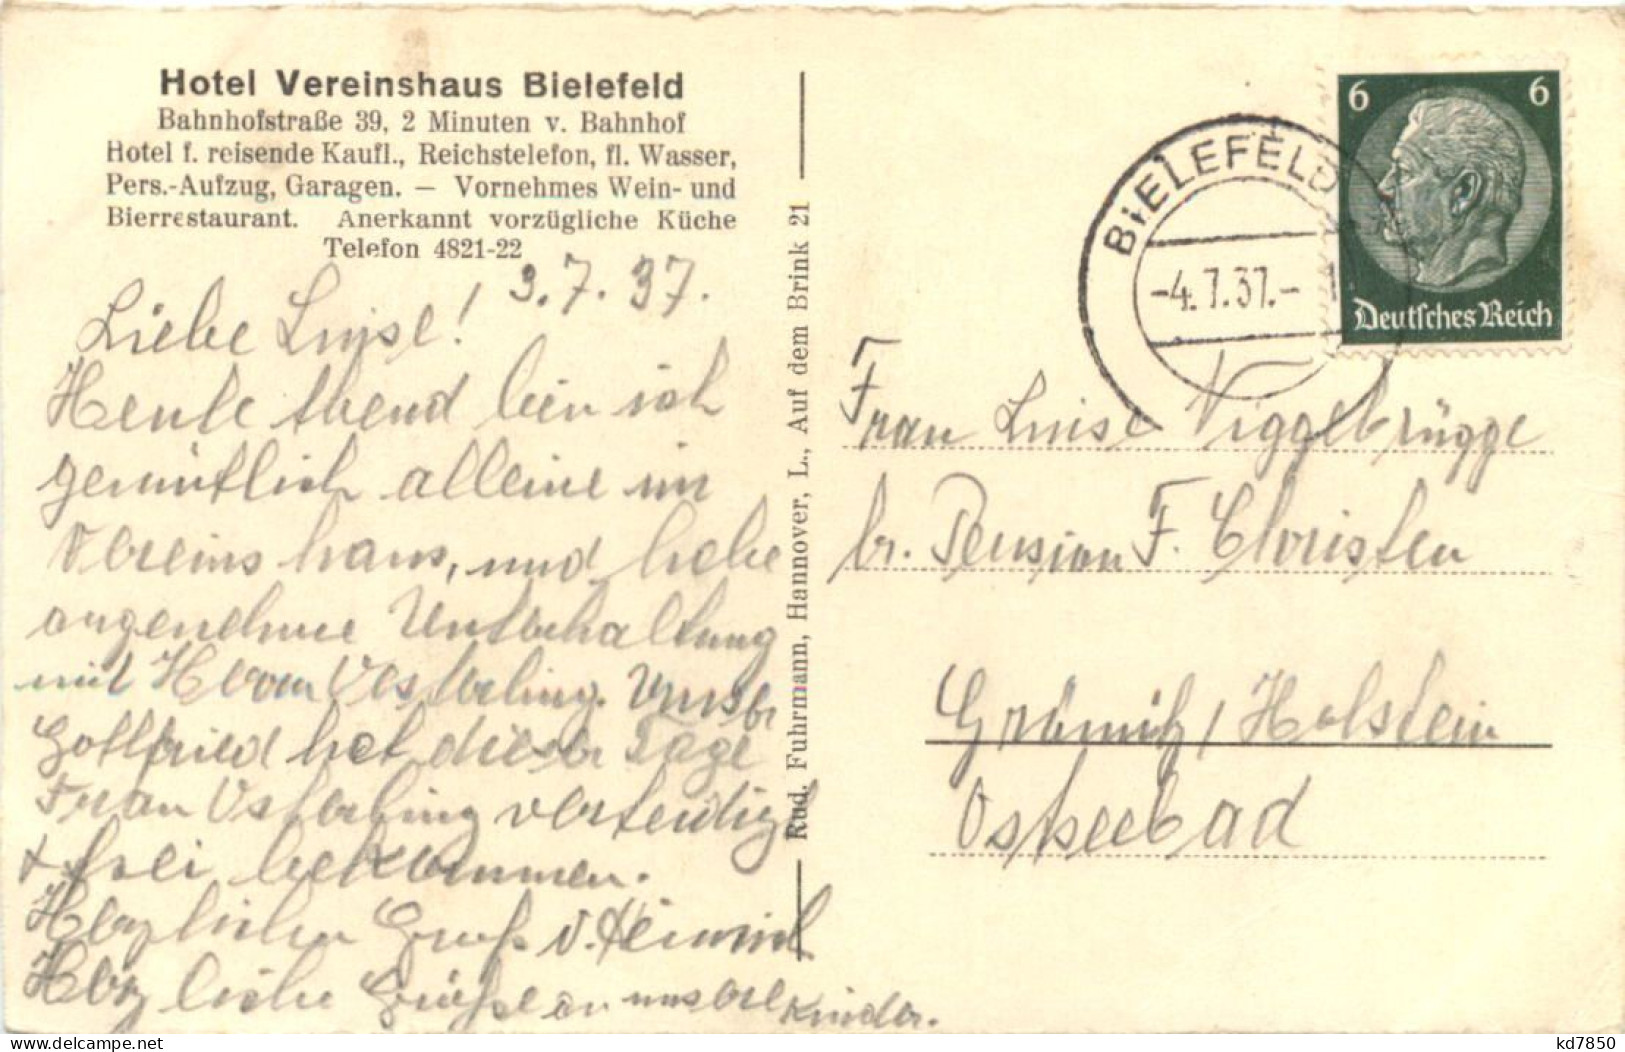 Hotel Vereinshaus Bielefeld
Bahnhofstraße 39, 2 Minuten v. Bahnhof
Hotel f. reisende Kaufl., Reichstelefon, fl. Wasser,
Pers.-Aufzug, Garagen. — Vornehmes Wein- und
Bierrestaurant. Anerkannt vorzügliche Küche
Telefon 4821-22
3.7.37.
Liebe Luise!
Heute Abend bin ich
gemütlich alleine im
Vereinshaus, und habe
angenehme Unterhaltung
mit Herrn Vesterling. Unser
Gottfried hat dieser Tage
Frau Vesterling verteidigt
+ frei bekommen.
Herzlichen Gruß v. Heinrich
Herzliche Grüße an unsere Kinder.
Rud. Fuhrmann, Hannover, L., Auf dem Brink 21
BIELEFELD
-4.7.37.-
6 6
Deutsches Reich
Frau Luise Niggebrügge
br. Pension F. Christen
Grömitz, Holstein
Ostseebad
www.delcampe.net
kd7850